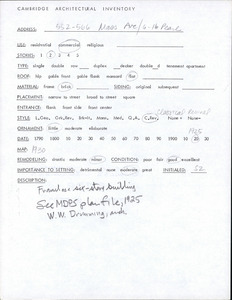 CAMBRIDGE ARCHITECTURAL INVENTORY
ADDRESS: 552-566 Mass Ave / 6-16 Pearl
USE: residential commercial religious
STORIES: 1 2 3 4 5
TYPE: single double row duplex decker double d tenement apartment
ROOF: hip gable front gable flank mansard flat
MATERIAL: frame brick SIDING: original subsequent
PLACEMENT: narrow to street broad to street square
ENTRANCE: flank front side front center
Classical Revival
ORNAMENTS: little moderate elaborate 1925
DATE: 1790 1800 10 20 30 40 50 60 70 80 90 1900 10 20 30
MAP: 1930
REMODELING: drastic moderate minor CONDITION: poor fair good excellent
IMPORTANCE TO SETTING: detrimental more moderate great INITIALED:
DESCRIPTION:
six-story building
See MDPS plan file, 1925
W.W. Drummey, arch